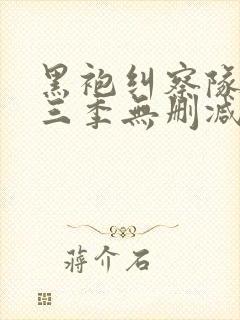 黑袍纠察隊
三季無删减
蒋介石